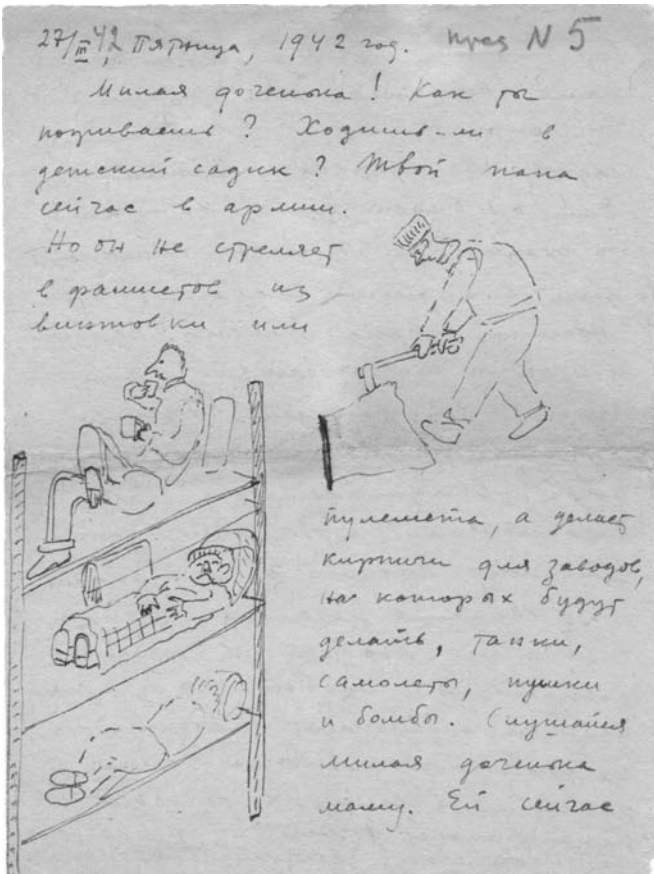 27/III 42, Пятница, 1942 год. № 5
Милая доченька! Как ты
поживаешь? Ходишь-ли в
детский садик? Твой папа
сейчас в армии.
Но он не стреляет
в фашистов из
винтовки или
пулемета, а делает
кирпичи для заводов,
на которых будут
делать, танки,
самолеты, пушки
и бомбы. Слушайся
милая доченька
маму. Ей сейчас